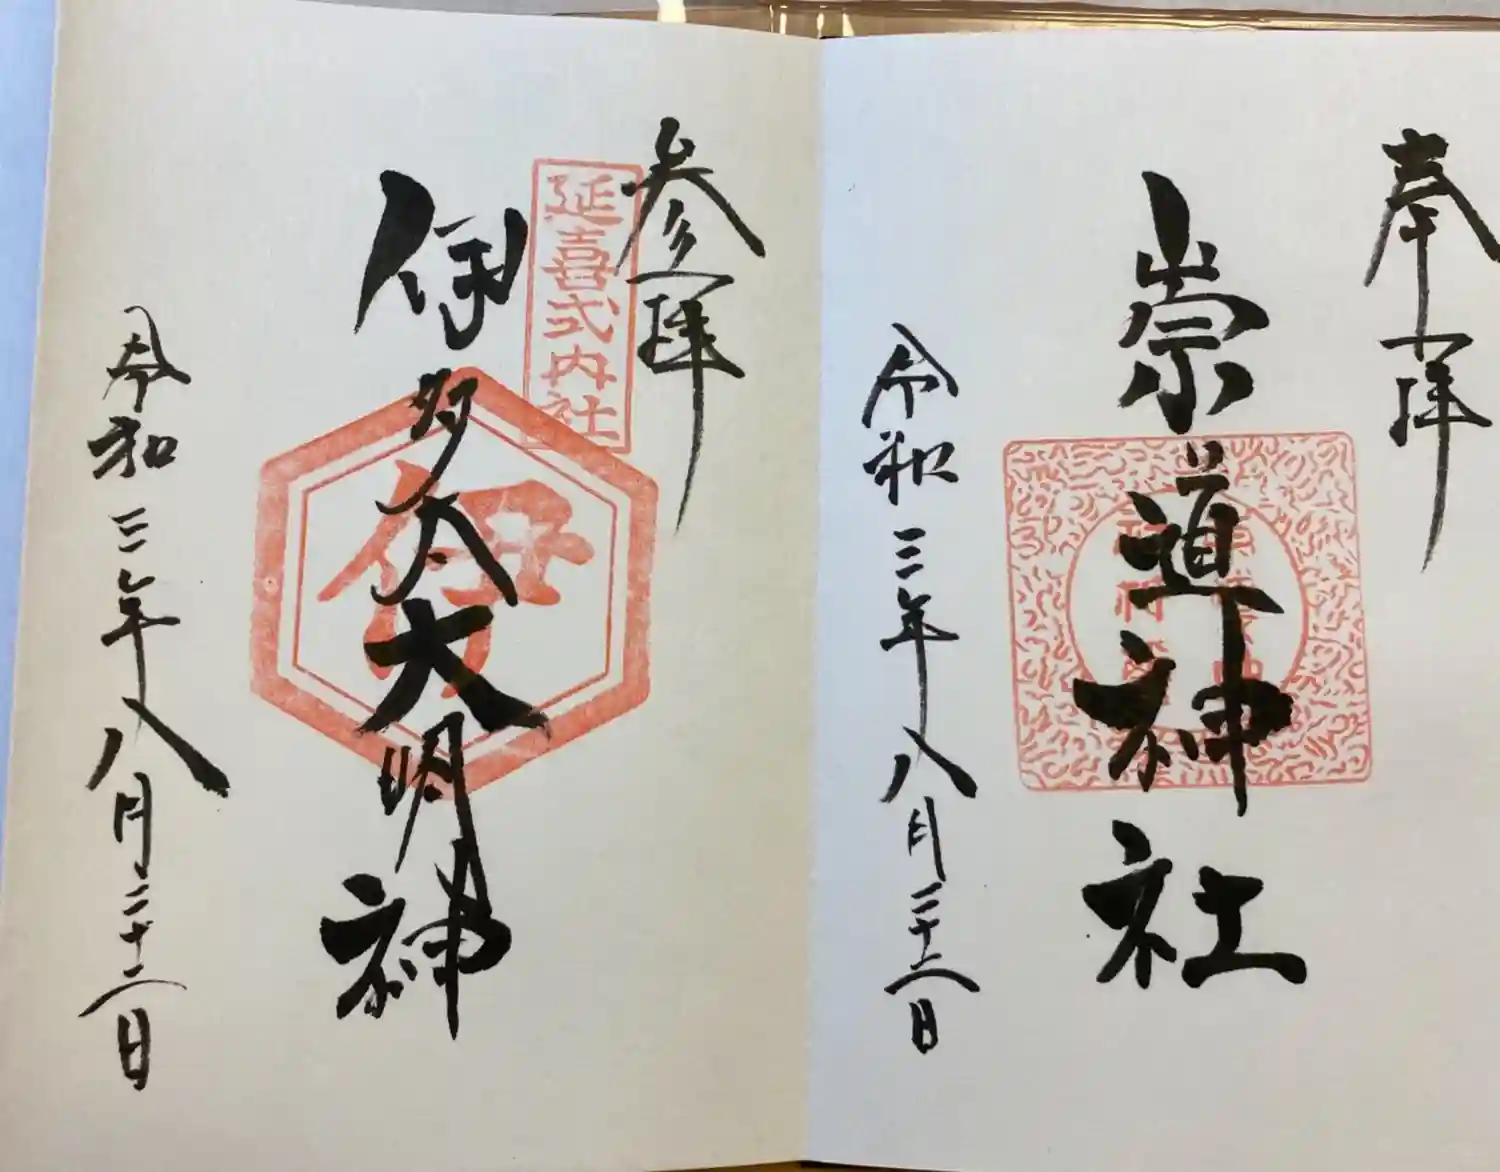 奉拝
崇道神社
令和三年八月二十二日
参拝
延喜式内社
伊多太大明神
伊
令和三年八月二十二日